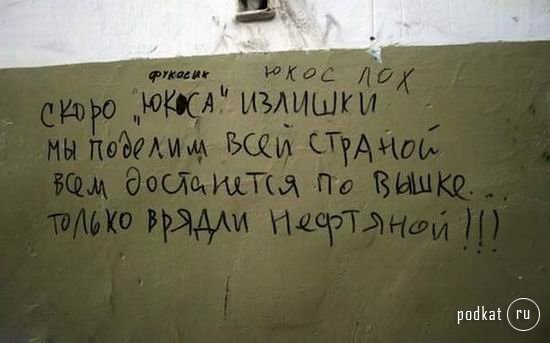 фукасик
ЮКОС ЛОХ
СКОРО „ЮКОСА" ИЗЛИШКИ
МЫ ПОДЕЛИМ ВСЕЙ СТРАНОЙ
ВСЕМ ДОСТАНЕТСЯ ПО ВЫШКЕ...
ТОЛЬКО ВРЯДЛИ НЕФТЯНОЙ!!!
podkat ru